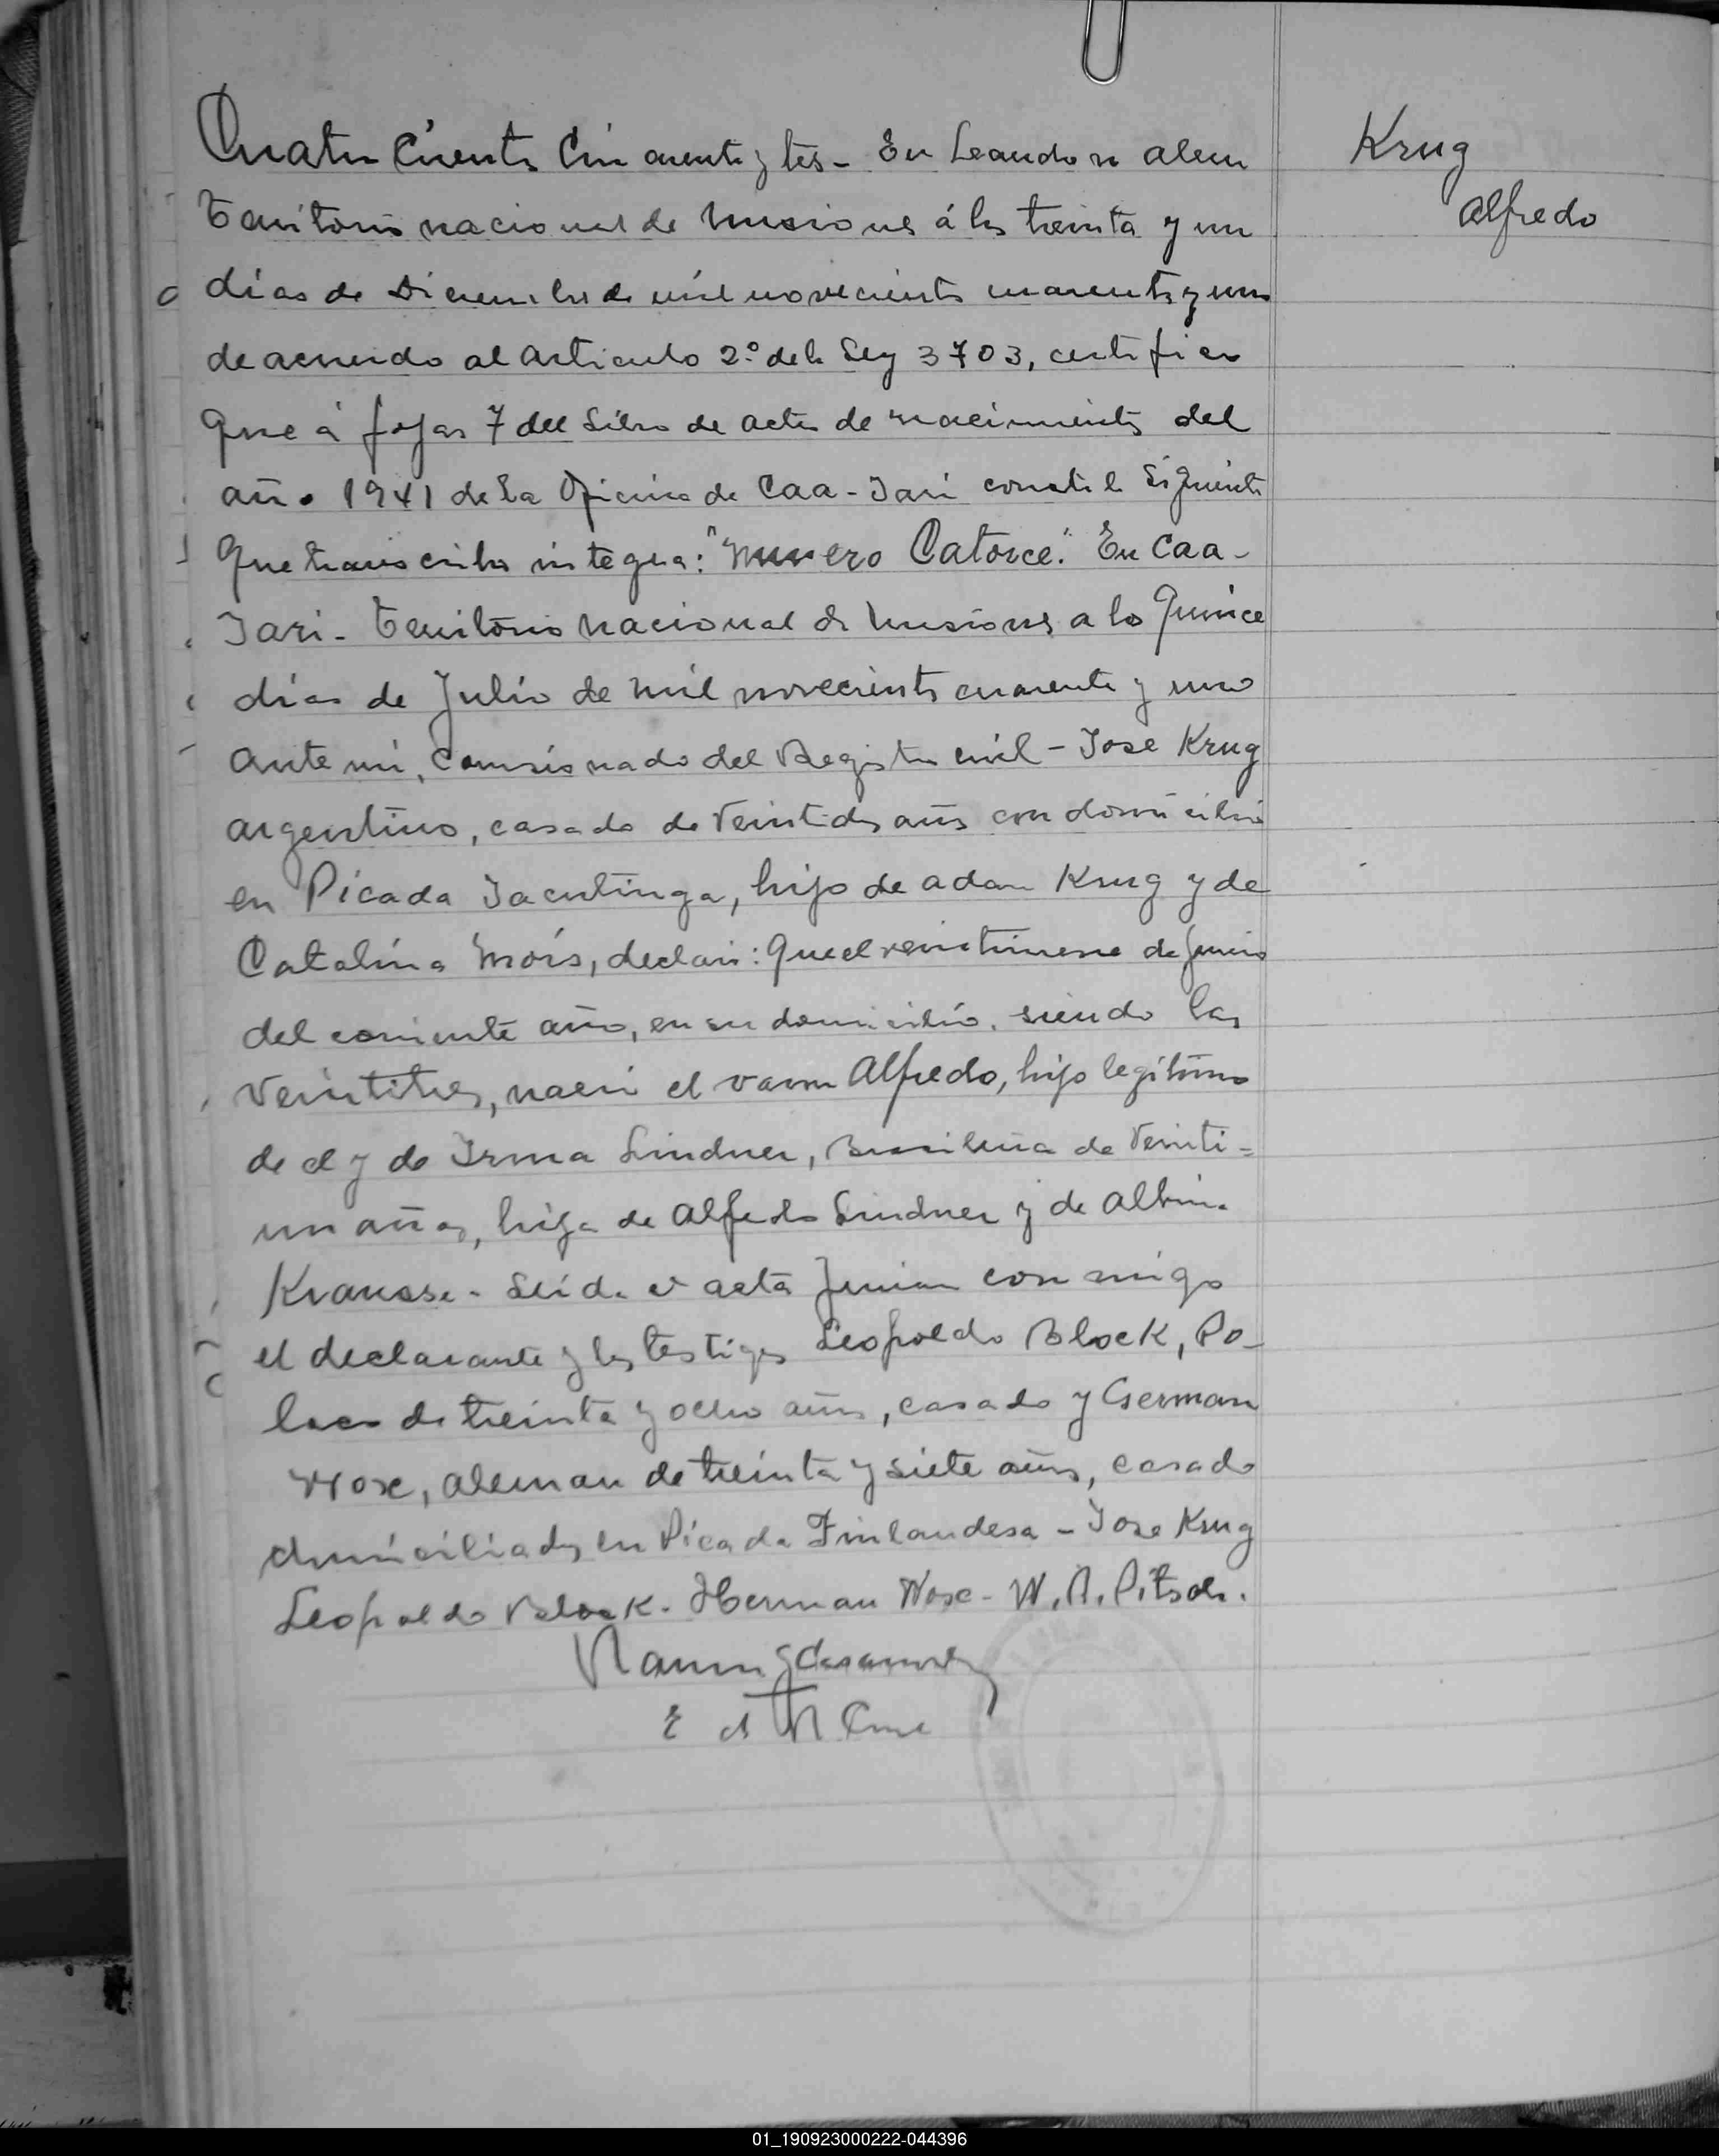 Cuatro Cientos Cincuenta y tres - En Leandro N Alem
Krug
Alfredo
Territorio nacional de Misiones á los treinta y un
días de Diciembre de mil novecientos cuarenta y uno
de acuerdo al articulo 2º de la Ley 3703, certifico
Que á fojas 7 del Libro de actas de nacimientos del
año 1941 de la Oficina de Caa-Jari consta la siguiente
Que transcribo integra: "Numero Catorce". En Caa-
Jari - Territorio Nacional de Misiones a los Quince
días de Julio de mil novecientos cuarenta y uno
Ante mi, Comisionado del Registro civil - Jose Krug
argentino, casado de veintidos años con domicilio
en Picada Jacutinga, hijo de adan Krug y de
Catalina Mors, declaró: Que el veintinueve de Junio
del corriente año, en su domicilio, siendo las
veintitres, nació el varon Alfredo, hijo legítimo
de el y de Irma Lindner, Brasileña de veinti=
un años, hija de Alfredo Lindner y de Albina
Krausse - Leída el acta firman conmigo
el declarante y los testigos Leopoldo Block, Po-
laco de treinta y ocho años, casado y German
Wose, aleman de treinta y siete años, casado
domiciliados en Picada Finlandesa - Jose Krug
Leopoldo Block - Herman Wose - W. A. Pitsch.
01_190923000222-044396